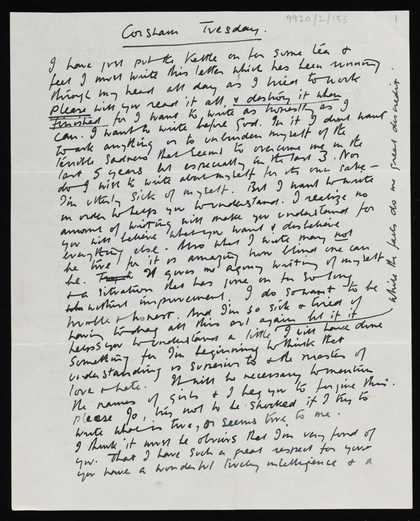 9920/2/153
1
Corsham Tuesday.
I have just put the kettle on for some tea &
feel I must write this letter which has been running
through my head all day as I tried to work
please will you read it all, & destroy it when
finished for I want to write as honestly as I
can. I want to write before God. In it I dont want
to ask anything or to unburden myself of the
terrible sadness that seems to overcome me in the
last 5 years but especially in the last 3. Nor
do I wish to write about myself for its own sake –
I'm utterly sick of myself. But I want to write
in order to help you to understand. I realize no
amount of writing will make you understand for
you will believe what you want & disbelieve
everything else. Also what I write may not
be true for it is amazing how blind one can
be. It gives me agony writing of myself
& a situation that has gone on for so long
without improvement. I do so want to be
humble & honest. And I'm so sick & tired of
having to drag all this out again but if it
helps you to understand a little I will have done
something for I'm beginning to think that
understanding is superior to & the master of
love & hate. It will be necessary to mention
the names of girls & I beg you to forgive this.
Please Jo, try not to be shocked if I try to
write what is true, or seems true, to me.
I think it must be obvious that I'm very fond of
you. That I have such a great respect for your
you have a wonderful lively intelligence & a
while the feels do no great